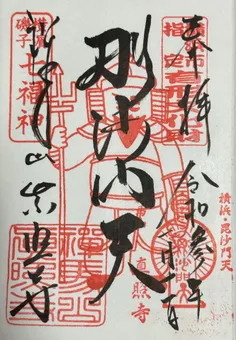 奉拝
横浜市
指定有形文化財
令和参年
横浜・毘沙門天
毘沙門天
真照寺
磯子
七福神
禅馬山
真照寺